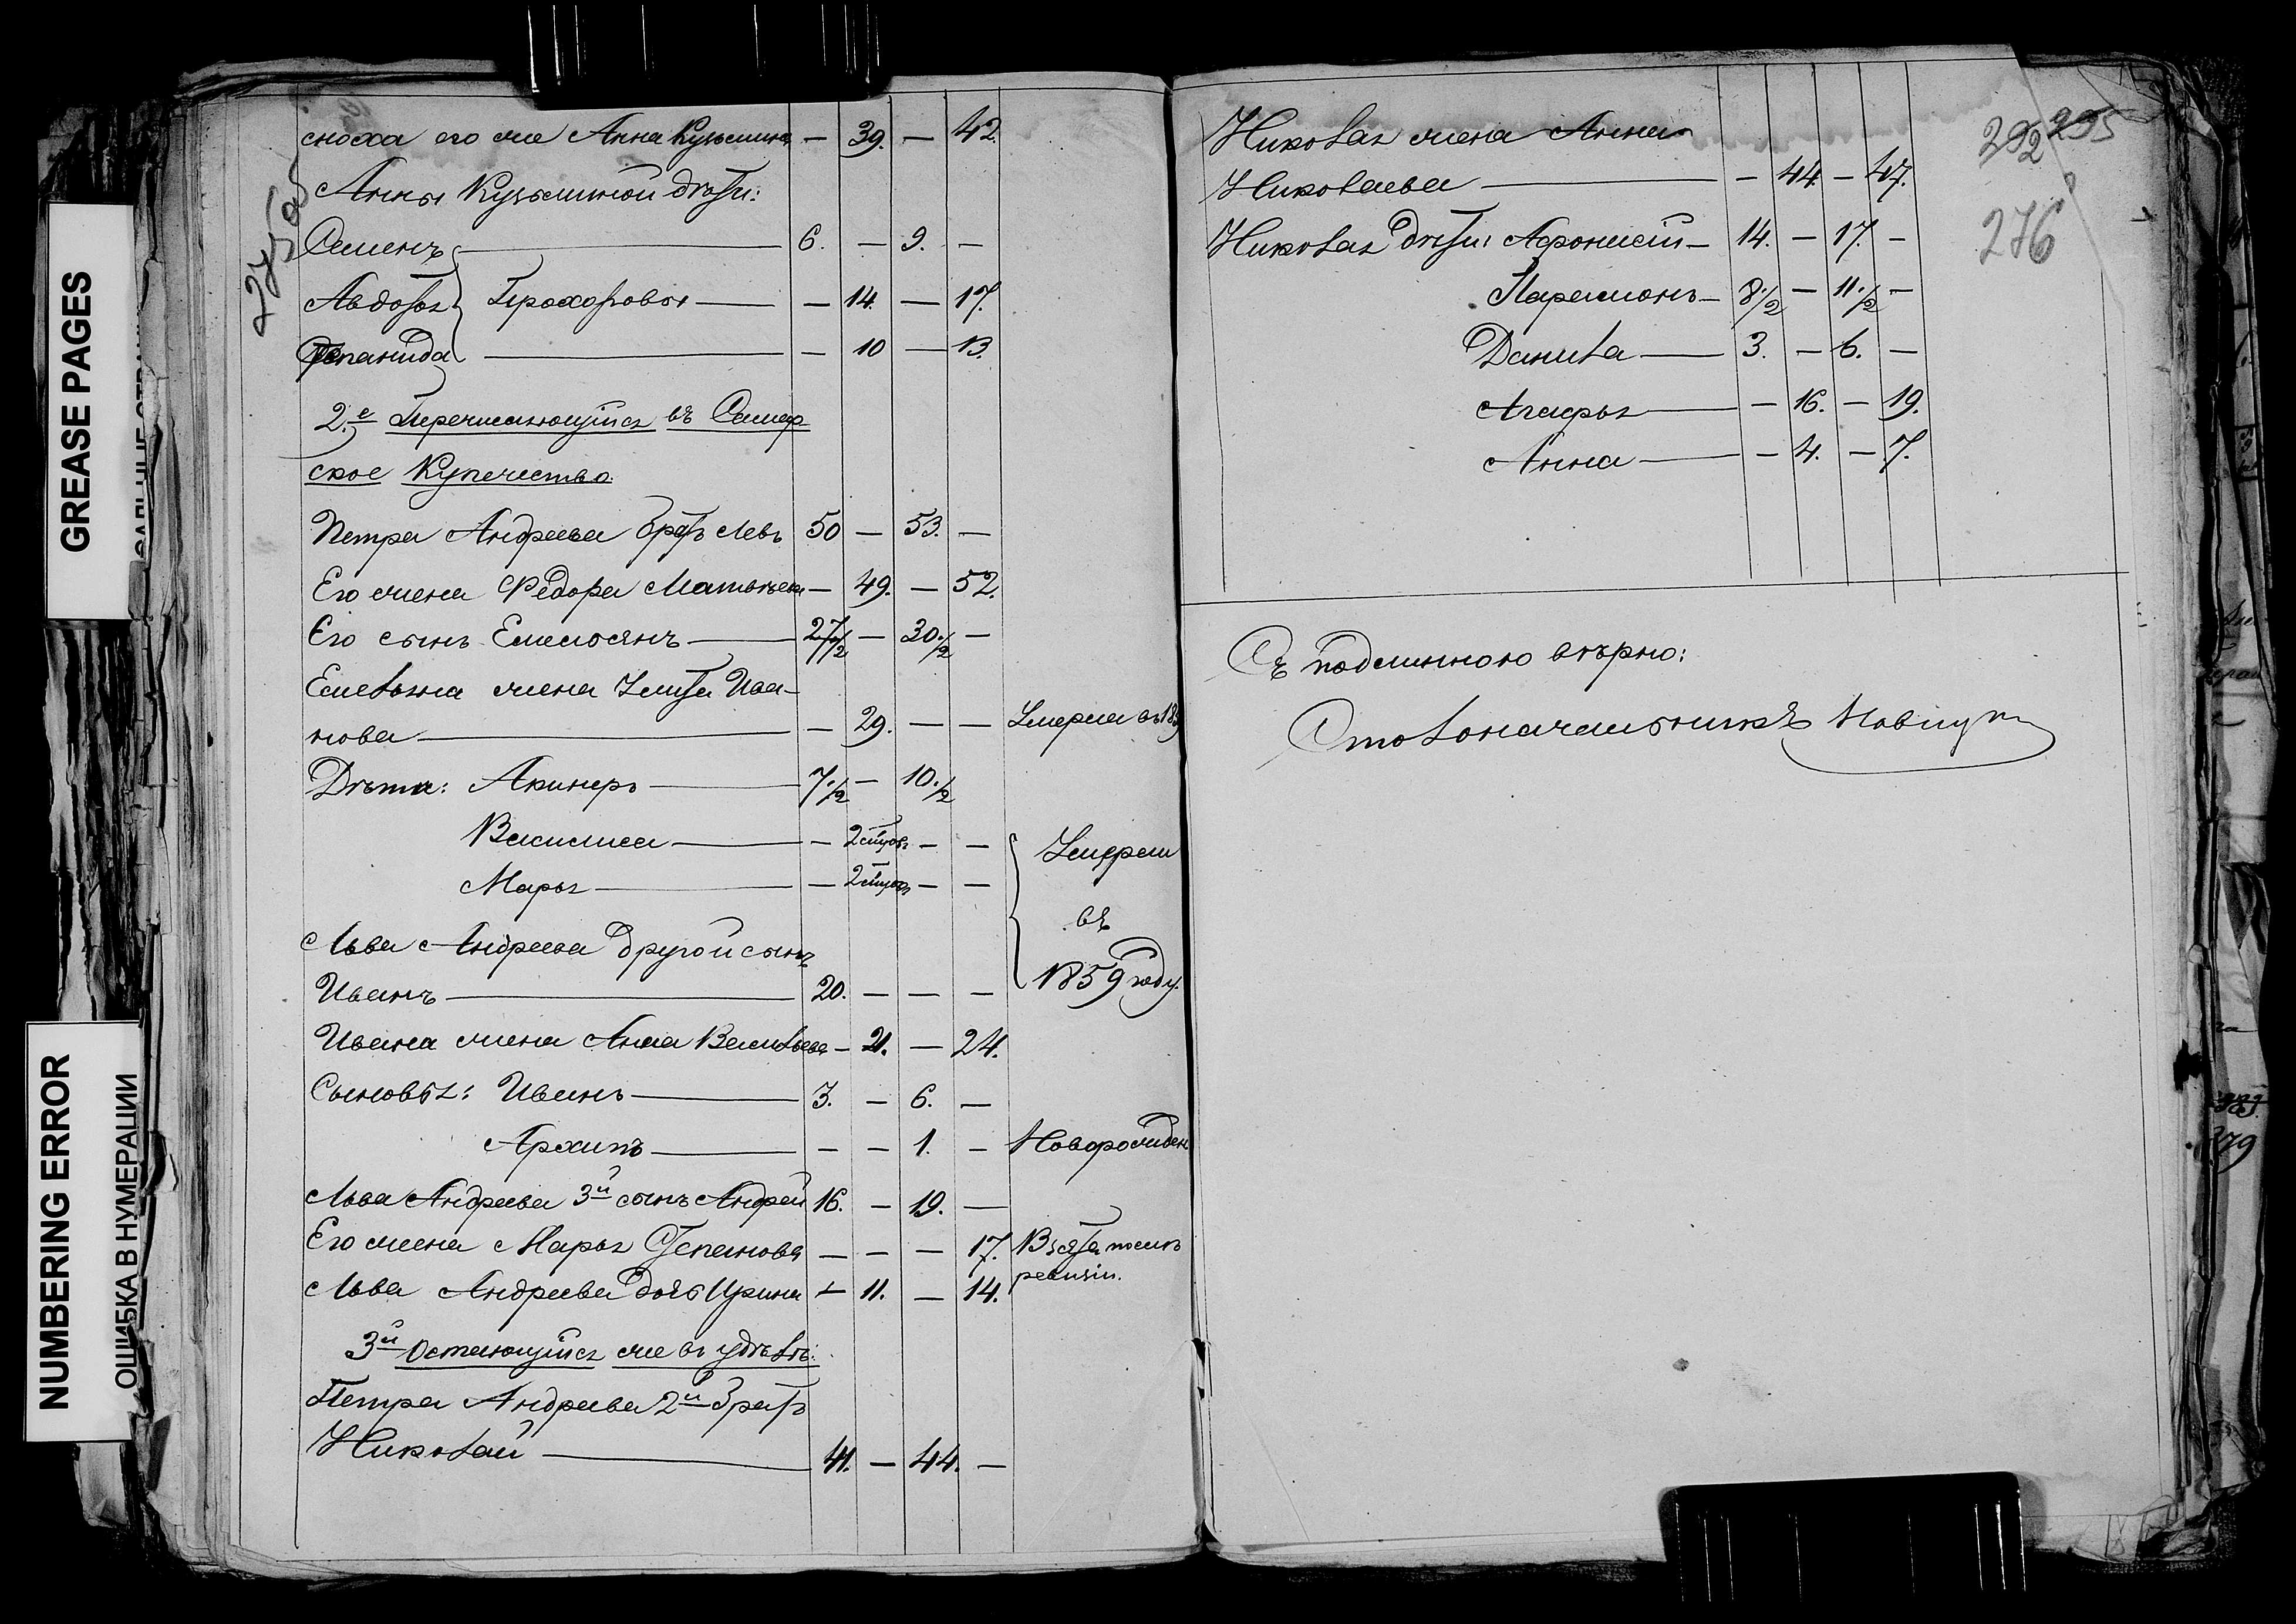 сноха его же Анна Кузьмина — 39. — 42.
Анны Кузьминой дѣти:
Семенъ — 6. — 9. —
Авдотья Прохоровы — — 14. — 17.
Степанида — — 10 — 13.
2.е Перечисляющiися въ Самар-
ское Купечество.
Петра Андреева братъ Левъ 50 — 53. —
Его жена Ѳедора Матвѣева — 49. — 52.
Его сынъ Емельянъ — 27 1/2 — 30. 1/2 —
Емельяна жена Улита Ива-
нова — — 29. — — Умерла въ 185
Дѣти: Акинеръ — 7. 1/2 — 10. 1/2
Василиса — — 2 — —
Марья — — 2 — —
Умерли
въ
1859 году.
Льва Андреева другой сынъ
Иванъ — 20. — — —
Ивана жена Анна Васильева — 21. — 24.
Сыновья: Иванъ — 3. — 6. —
Архипъ — — — 1. — Новорожден
Льва Андреева 3й сынъ Андрей 16. — 19. —
Его жена Марья Степанова — — — 17. Взята послѣ
ревизiи.
Льва Андреева дочь Ирина — 11. — 14.
3й Остающiися же въ удѣлѣ:
Петра Андреева 2й братъ
Николай — 41. — 44. —
Николая жена Анна
Николаева — — 44. — 47.
Николая дѣти: Афонасiй — 14. — 17. —
Парамонъ — 8. 1/2 — 11. 1/2 —
Данила — 3. — 6. —
Агафья — — 16. — 19.
Анна — — 4. — 7.
Съ подлиннымъ вѣрно:
Столоначальникъ
292 295
276
275 об
GREASE PAGES
NUMBERING ERROR
ОШИБКА В НУМЕРАЦИИ
379